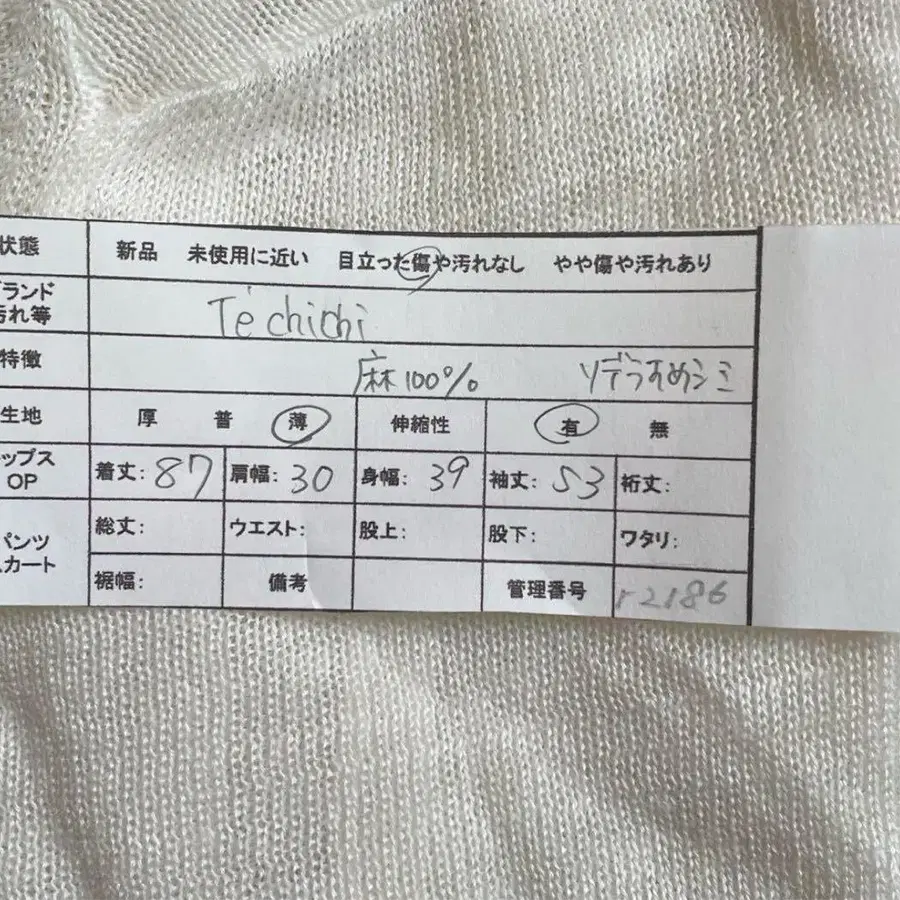 状態 新品 未使用に近い 目立った傷や汚れなし やや傷や汚れあり
ブランド
汚れ等 Te'chichi
特徴 麻100% ソデうすめシミ
生地 厚 普 薄 伸縮性 有 無
ップス
OP 着丈: 87 肩幅: 30 身幅: 39 袖丈: 53 裄丈:
パンツ
スカート 総丈: ウエスト: 股上: 股下: ワタリ:
裾幅: 備考 管理番号 r2186